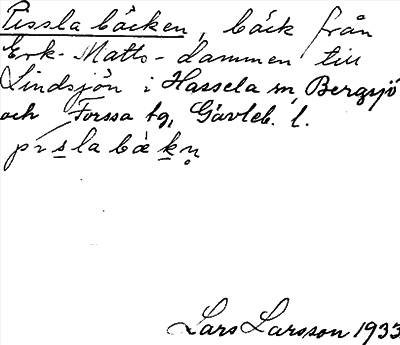 Pissla bäcken, bäck från
Erk-Matts-dammen till
Lindsjön i Hassela sn, Bergsjö
och Forssa tg, Gävleb. l.
pisla bäkn
Lars Larsson 1933